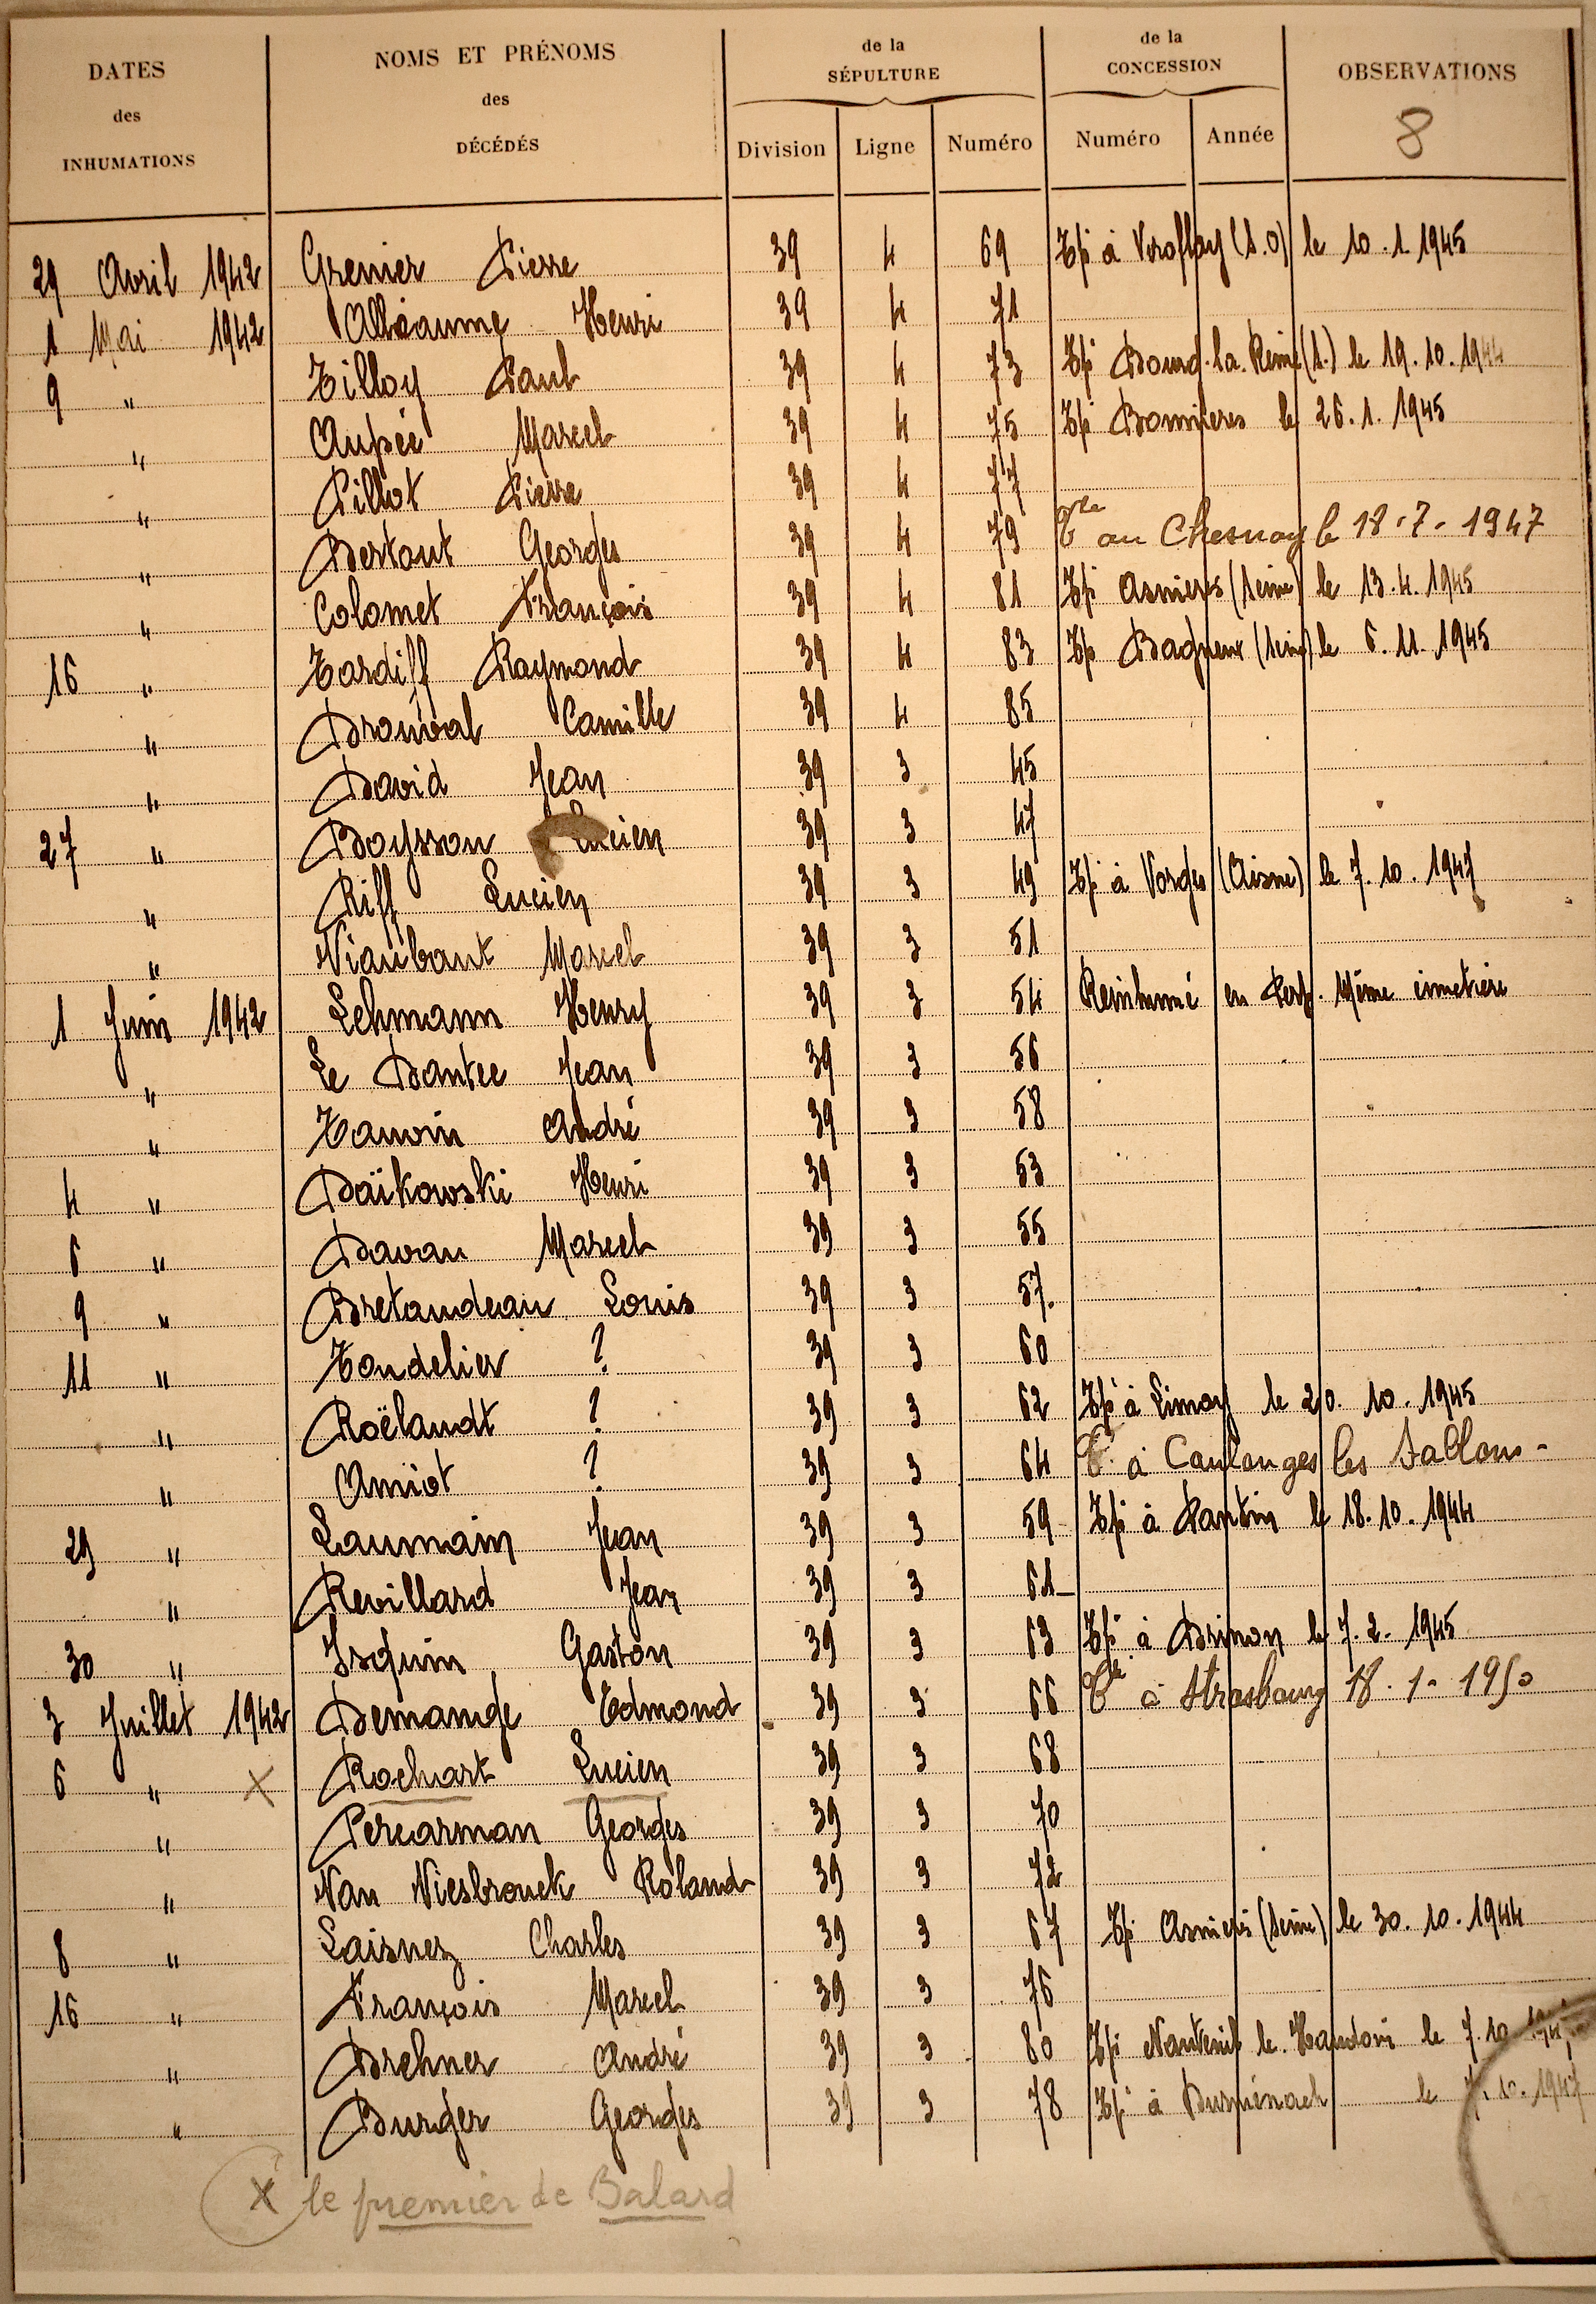 DATES des INHUMATIONS
NOMS ET PRÉNOMS des DÉCÉDÉS
de la SÉPULTURE
de la CONCESSION
OBSERVATIONS
8
Division Ligne Numéro Numéro Année
29 Avril 1942 Grenier Pierre 39 4 69 Tp à Viroflay (S.O) le 10.1.1945
1 Mai 1942 Alléaume Henri 39 4 71
9 " Tilloy Paul 39 4 73 Tp Bourg-la-Reine (S.) le 19.10.1944
" Aupée Marcel 39 4 75 Tp Bonnieres le 26.1.1945
" Pillot Pierre 39 4 77
" Bertaut Georges 39 4 79 au Chesnay le 18-7-1947
" Colomet François 39 4 81 Tp Asnieres (Seine) le 13.4.1945
16 " Tardiff Raymond 39 4 83 Tp Bagneux (Seine) le 6.11.1945
" Drouval Camille 39 4 85
" David Jean 39 3 45
27 " Boysson Lucien 39 3 47
" Riff Lucien 39 3 49 Tp à Vorges (Aisne) le 7.10.1947
" Niaubant Marcel 39 3 51
1 Juin 1942 Lehmann Henry 39 3 54 Reinhumé en Perp. Même cimetière
" Le Dantec Jean 39 3 56
" Hauvin André 39 3 58
4 " Daïkowski Henri 39 3 53
6 " Bavan Marcel 39 3 55
9 " Bretaudeau Louis 39 3 57.
11 " Tondelier ? 39 3 60
" Roëlandt ? 39 3 62 Tp à Limay le 20.10.1945
" Amiot ? 39 3 64 T. à Caulanges les Sablons-
29 " Laumain Jean 39 3 59 Tp à Pantin le 18.10.1944
" Revillard Jean 39 3 61
30 " Isquin Gaston 39 3 63 Tp à Brinon le 7.2.1945
3 Juillet 1942 Demange Edmond 39 3 66 à Strasbourg 18-1-1950
6 " X Rochart Lucien 39 3 68
" Percarman Georges 39 3 70
" Van Niesbrouck Roland 39 3 72
8 " Laisnez Charles 39 3 67 Tp Asnieres (Seine) le 30.10.1944
16 " François Marcel 39 3 76
" Brehner André 39 3 80 Tp Nanteuil le Haudoin le 7.10
" Burger Georges 39 3 78 Tp à Durménach le 7.10.1947
X le premier de Balard